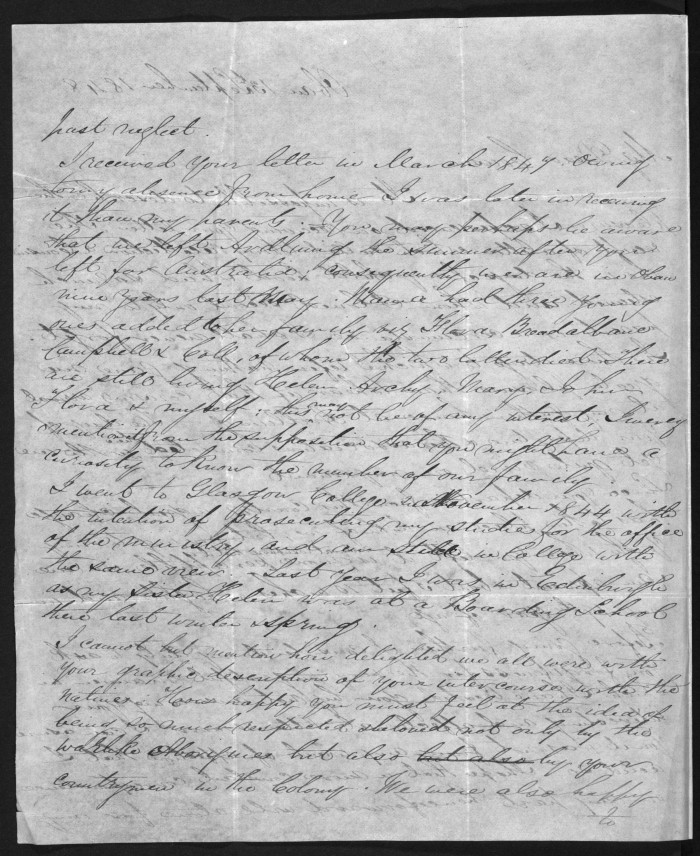 past neglect.
I received your letter in March 1847. Owing
to my absence from home I was later in receiving
it than my parents. You may perhaps be aware
that we left the summer after you
left for Australia; consequently we are in Oban
nine years last May. Mama had three young
ones added to her family viz Flora, Breadalbane
Campbell & Coll, of whom the two latter died. There
are still living Helen Archy Mary, John
Flora & myself; this may not be of any interest, I merely
mention from the supposition that you might have a
curiosity to know the number of our family.
I went to Glasgow College in November 1844 with
the intention of prosecuting my studies for the office
of the ministry, and am still in College with
the same view. Last year I was in Edinburgh
as my Sister Helen was at a Boarding School
there last winter & spring.
I cannot but mention how delighted we all were with
your graphic description of your intercourse with the
natives. How happy you must feel at the idea of
being so much respected & beloved not only by the
warlike Aborigines but also but also by your
countrymen in the Colony. We were also happy
to